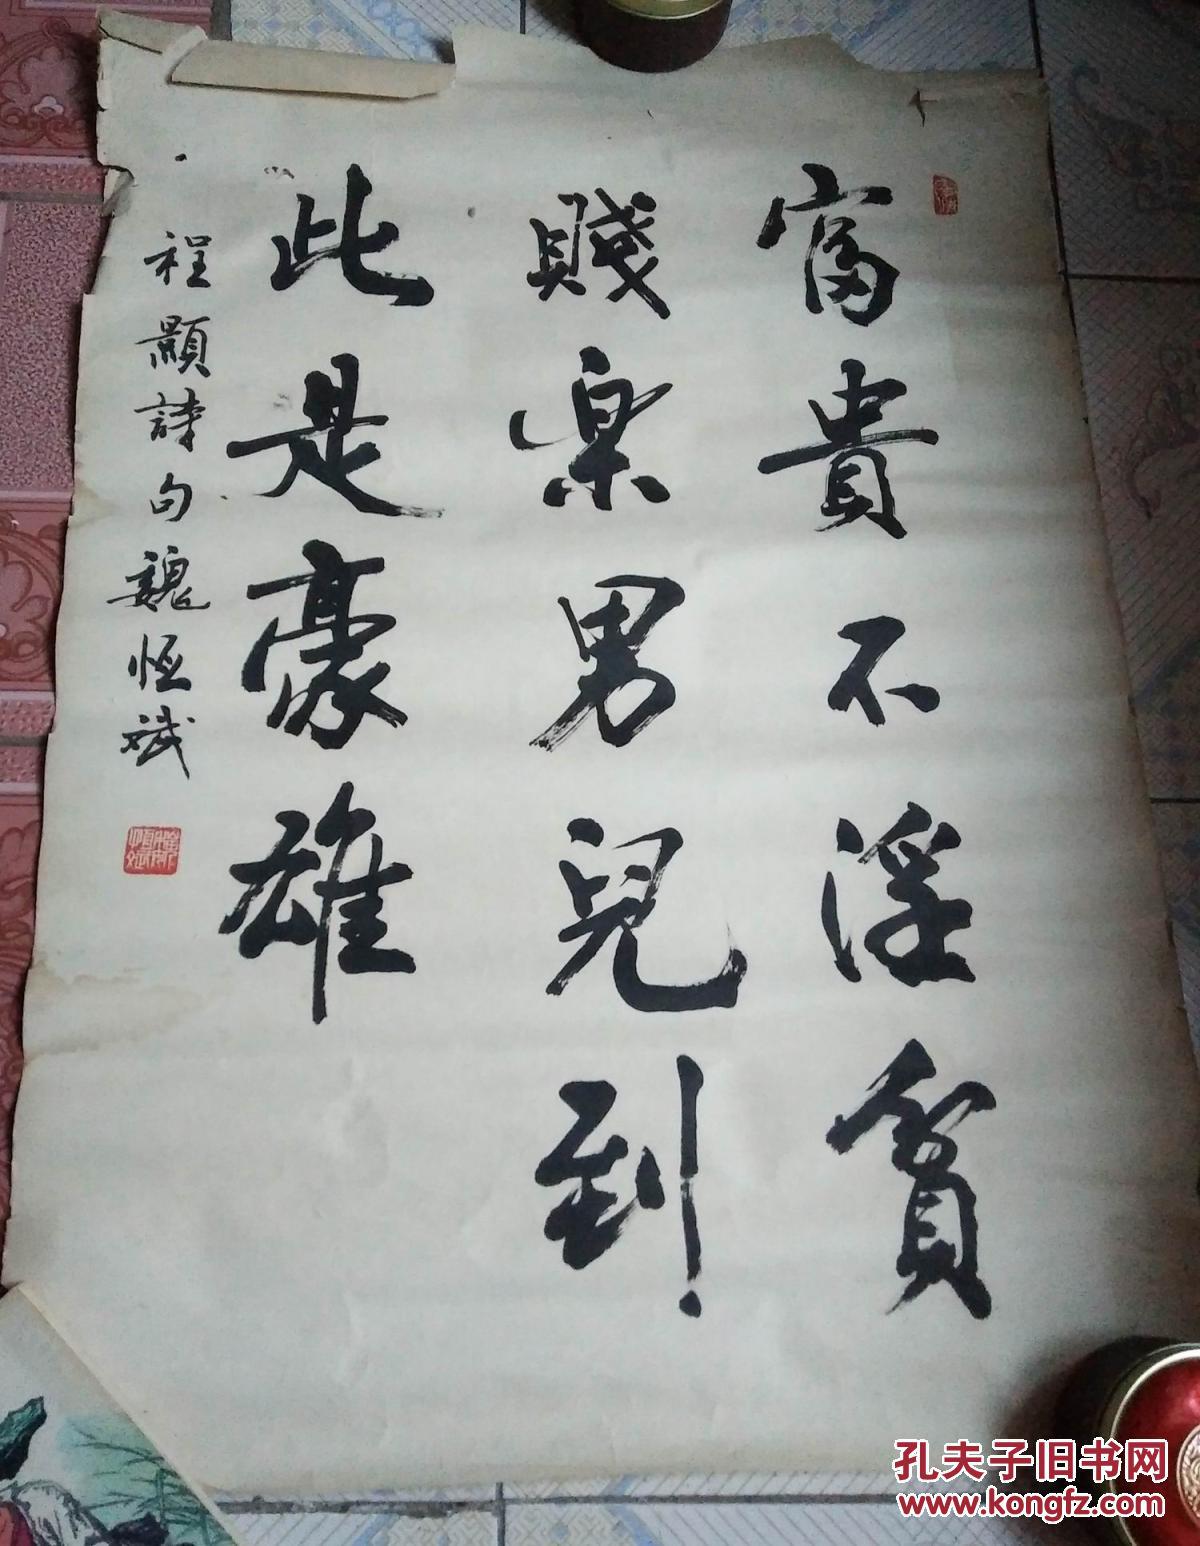 富貴不淫貧
賤楽男兒到
此是豪雄
程顥詩句魏恒斌
孔夫子旧书网
www.kongfz.com